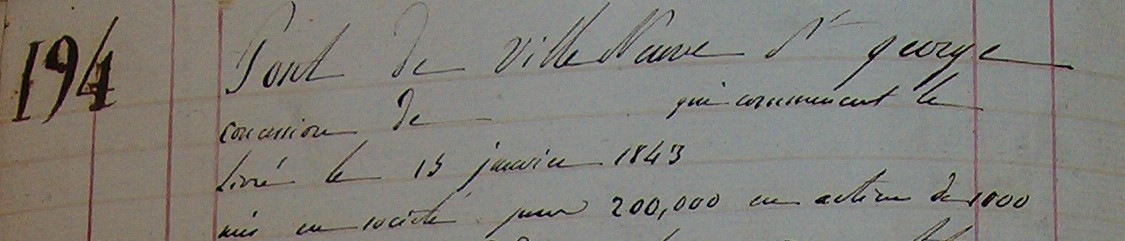 194
Pont de Ville Neuve St george
concession de qui commencent le
Livré le 15 janvier 1843
mis en société pour 200,000 en action de 1000